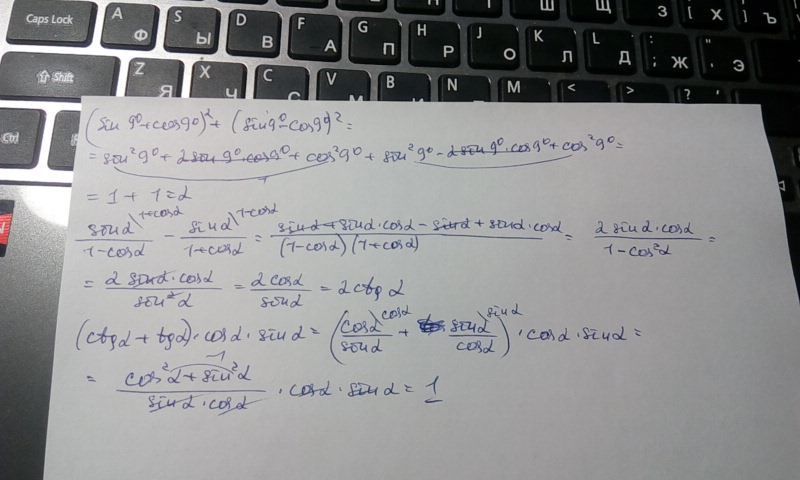 Caps Lock A Ф S Ы D В F А G П H Р J О K Л L Д : ; Ж " ' Э
Ш Щ З { [ Х } ] Ъ
Shift Z Я X Ч C С V М B N M < > ? '
Ctrl
(sin 9° + cos 9°)² + (sin 9° - cos 9°)² =
= sin² 9° + 2 sin 9° · cos 9° + cos² 9° + sin² 9° - 2 sin 9° · cos 9° + cos² 9° =
= 1 + 1 = 2
sin α \ 1+cosα / 1 - cos α - sin α \ 1-cosα / 1 + cos α = sin α + sin α · cos α - sin α + sin α · cos α / (1 - cos α)(1 + cos α) = 2 sin α · cos α / 1 - cos² α =
= 2 sin α · cos α / sin² α = 2 cos α / sin α = 2 ctg α
(ctg α + tg α) · cos α · sin α = (cos α \ cos α / sin α + sin α \ sin α / cos α) · cos α · sin α =
= cos² α + sin² α 1 / sin α · cos α · cos α · sin α = 1